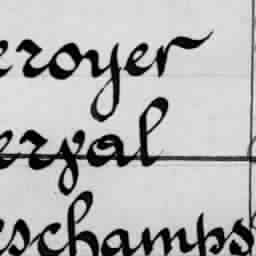 eroyer
erval
eschamps